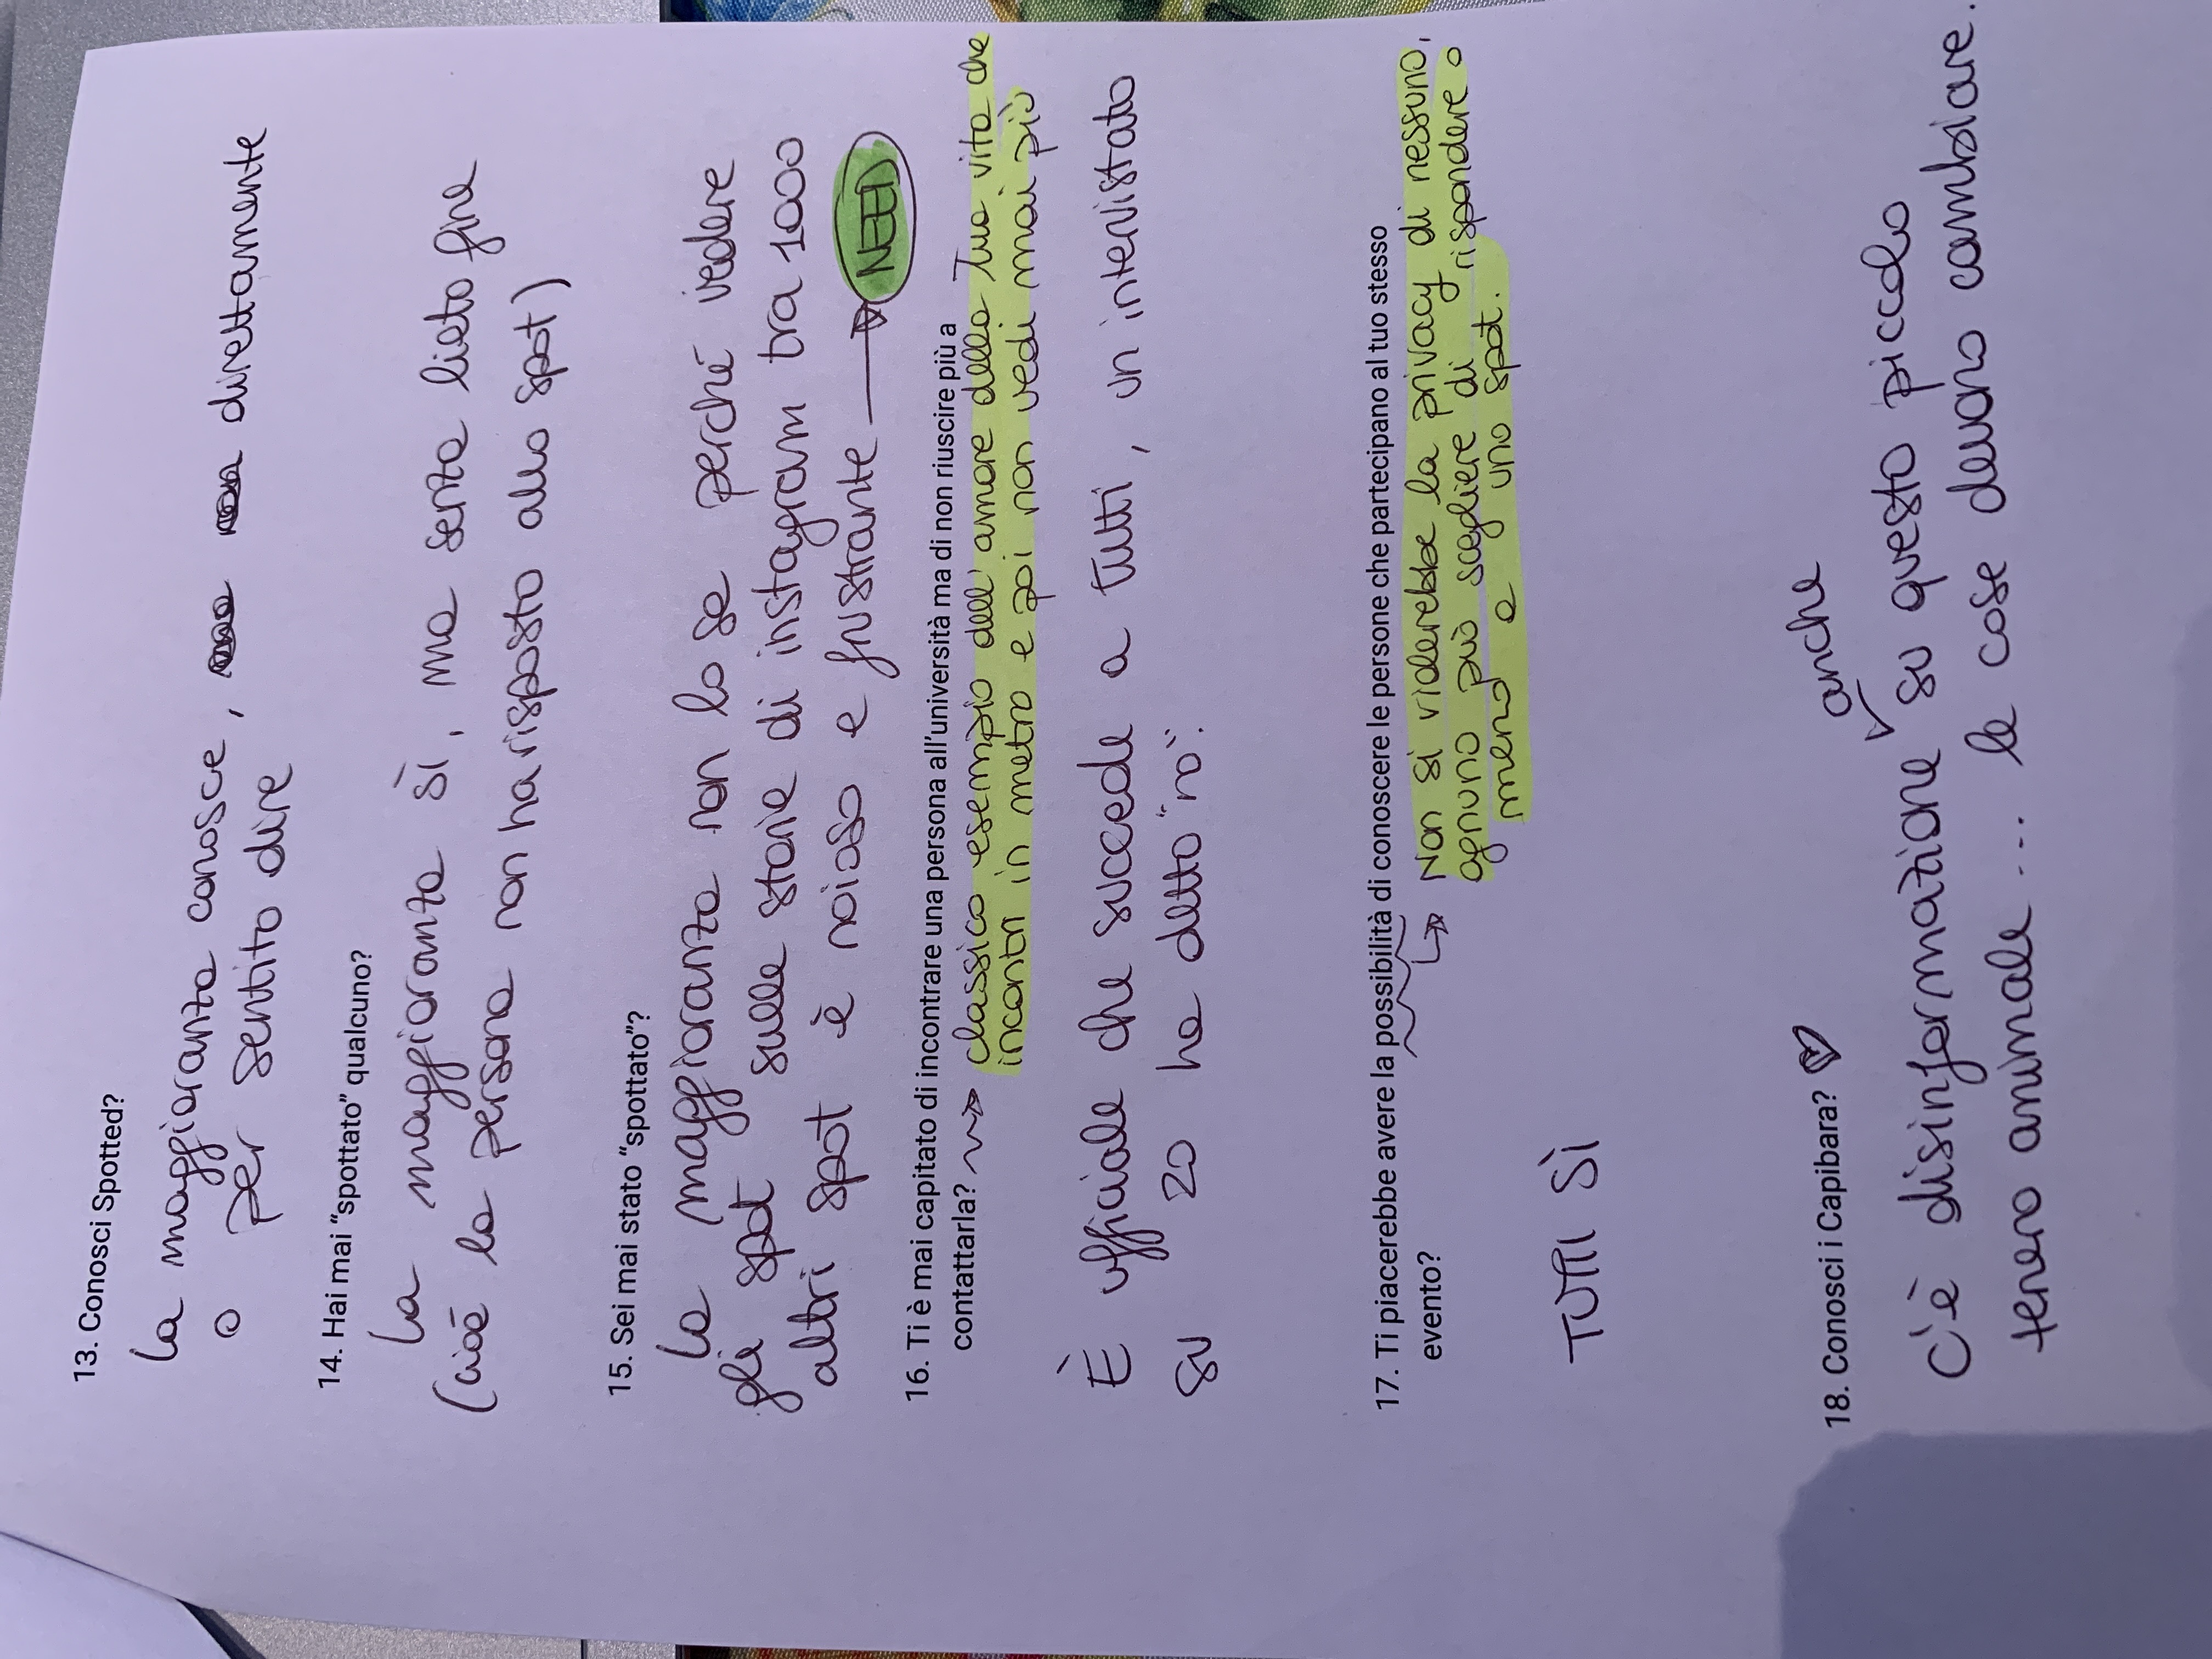 13. Conosci Spotted?
La maggioranza conosce, direttamente
o per sentito dire
14. Hai mai “spottato” qualcuno?
La maggioranza sì, ma senza lieto fine
(cioè la persona non ha risposto allo spot)
15. Sei mai stato “spottato”?
La maggioranza non lo sa perché vedere
gli spot sulle storie di instagram tra 1000
altri spot è noioso e frustrante → NEED
16. Ti è mai capitato di incontrare una persona all'università ma di non riuscire più a
contattarla? → classico esempio dell'amore della tua vita che
incontri in metro e poi non vedi mai più
È ufficiale che succede a tutti, un intervistato
su 20 ha detto "no".
17. Ti piacerebbe avere la possibilità di conoscere le persone che partecipano al tuo stesso
evento? → Non si violerebbe la privacy di nessuno,
ognuno può scegliere di rispondere o
meno a uno spot.
TUTTI SÌ
18. Conosci i Capibara? ♡
anche
c'è disinformazione su questo piccolo
tenero animale ... le cose devono cambiare.